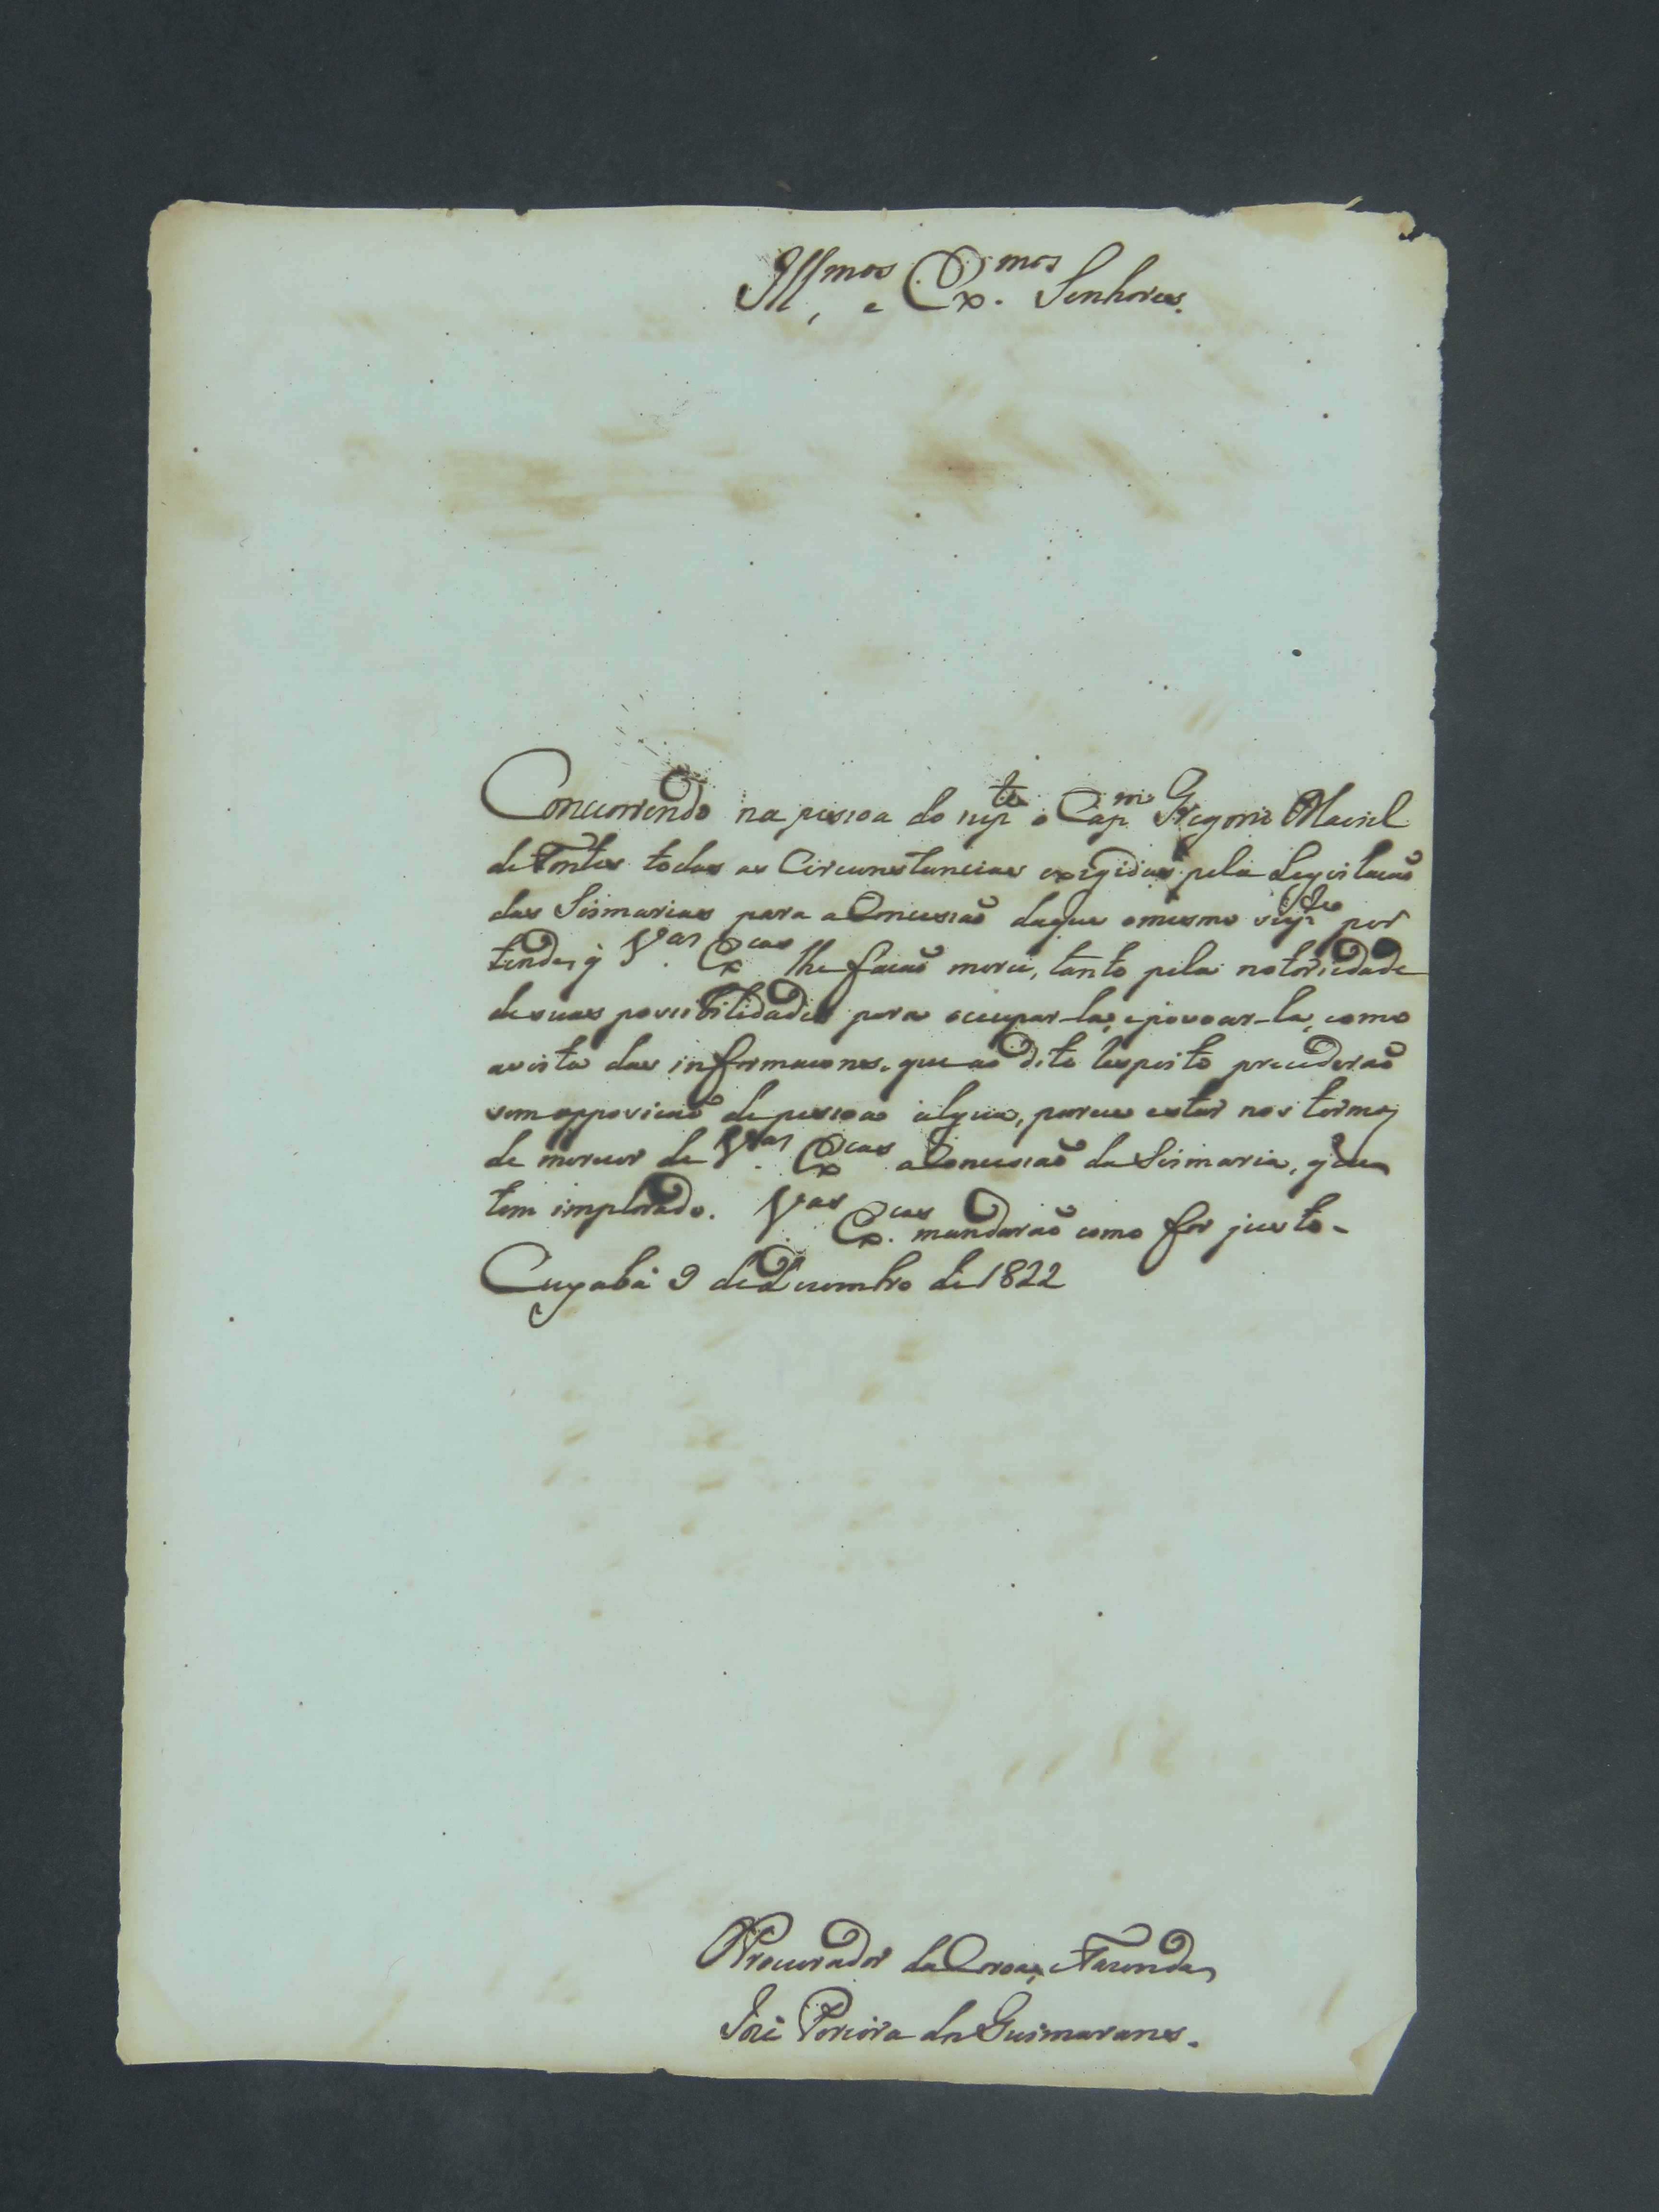 Illmos, e Exmos. Senhores.
Concorrendo na pessoa do supte o Capm Gregorio Maciel
de Fontes todas as Circunstancias exigidas pela Legislacaõ
das Sismarias para a Concessaõ da que o mesmo supte per
tende, q̃ Vas. Excas lhe facaõ merce, tanto pela notoriedade
de suas possibilidades para occupar-la, e povoar-la, como
avista das informacones, que ao dito respeito precederaõ
sem opposicaõ de pessoa algua, parece estar nos termos
de merecer de Vas. Excas a Concessaõ da Sismaria, q̃
tem implorado. Vas. Excas. mandaraõ como for justo-
Cuyabá 9 de Dezembro de 1822
O Procurador da Coroa, e Fazenda
José Pereira da Guimaranes.